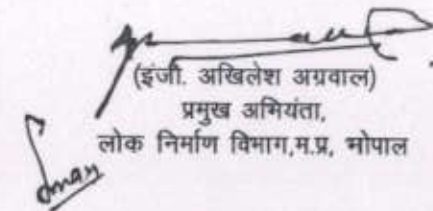 (इंजी. अखिलेश अग्रवाल)
प्रमुख अभियंता,
लोक निर्माण विभाग,म.प्र, भोपाल